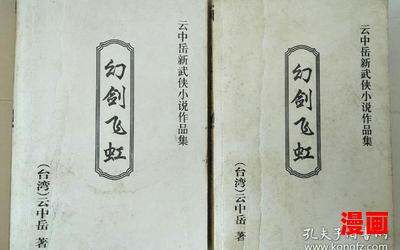 云中岳新武侠小说作品集
幻剑飞虹
(台湾)云中岳 著
云中岳新武侠小说作品集
幻剑飞虹
(台湾)云中岳 著
漫画